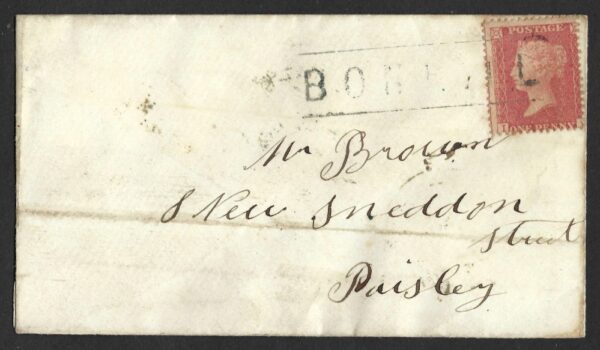 POSTAGE
ONE PENNY
Mr Brown
8 New Sneddon
Street
Paisley